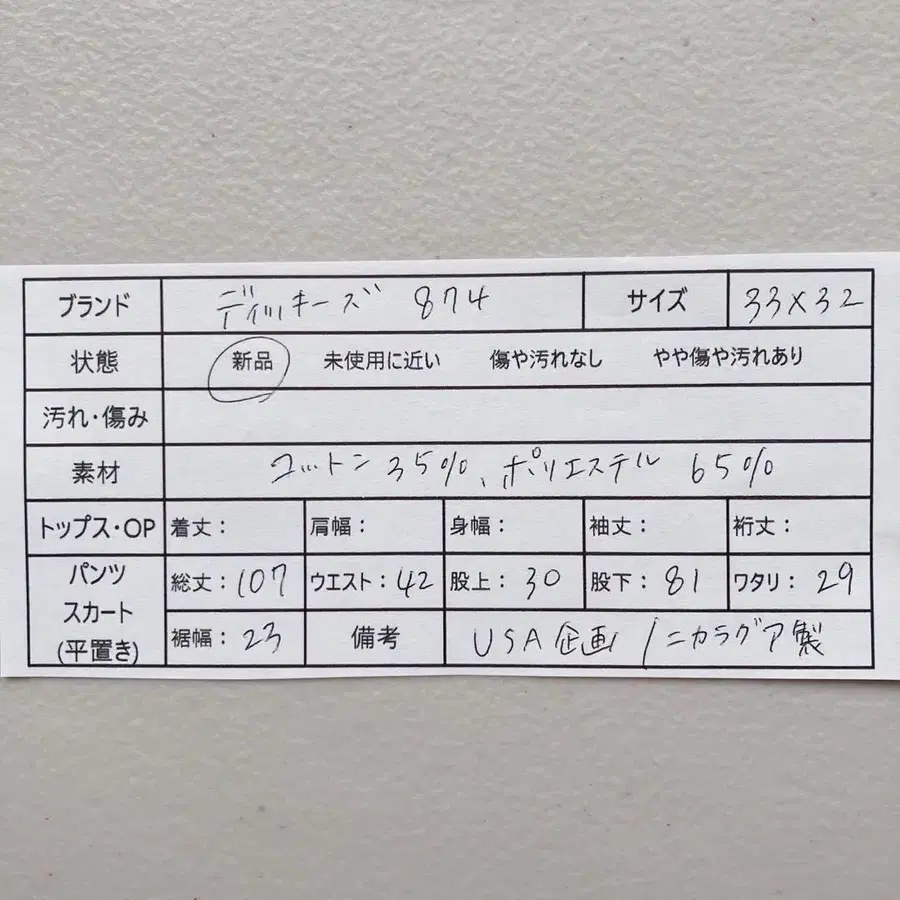 ブランド ディッキーズ 874 サイズ 33×32
状態 新品 未使用に近い 傷や汚れなし やや傷や汚れあり
汚れ・傷み
素材 コットン 35%、ポリエステル 65%
トップス・OP 着丈： 肩幅： 身幅： 袖丈： 裄丈：
パンツ
スカート
(平置き)
総丈：107 ウエスト：42 股上：30 股下：81 ワタリ：29
裾幅：23 備考 USA企画/ニカラグア製